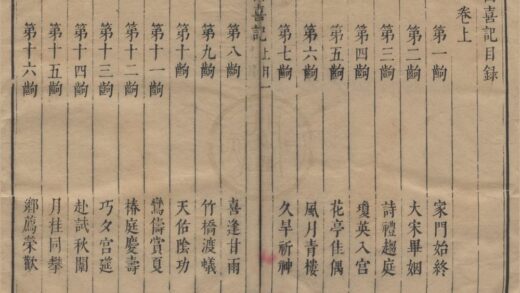 喜記目錄
卷上
第一齣 家門始終
第二齣 大宋畢姻
第三齣 詩禮趨庭
第四齣 瓊英入宮
第五齣 花亭佳偶
第六齣 風月青樓
第七齣 久旱祈神
喜記
第八齣 喜逢甘雨
第九齣 竹橋渡蟻
第十齣 天佑陰功
第十一齣 鴛儔賞夏
第十二齣 椿庭慶壽
第十三齣 巧夕宮筵
第十四齣 赴試秋闈
第十五齣 月桂同攀
第十六齣 鄉薦榮歡